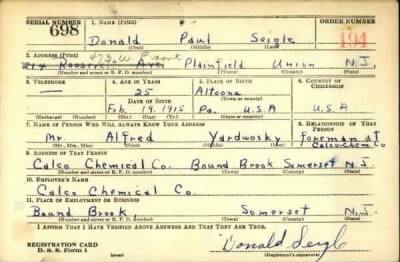 SERIAL NUMBER 1. NAME (Print) ORDER NUMBER
698 Donald Paul Seigle 194
(First) (Middle) (Last)
2. ADDRESS (Print) 473 W. Front
214 Roosevelt Ave. Plainfield Union N.J.
(Number and street or R. F. D. number) (Town) (County) (State)
3. TELEPHONE 4. AGE IN YEARS 5. PLACE OF BIRTH 6. COUNTRY OF CITIZENSHIP
— 25 Altoona
DATE OF BIRTH (Town or county)
Feb. 19, 1915 Pa. U.S.A U.S.A
(Exchange) (Number) (Mo.) (Day) (Yr.) (State or country)
7. NAME OF PERSON WHO WILL ALWAYS KNOW YOUR ADDRESS 8. RELATIONSHIP OF THAT PERSON
Mr. Alfred Yardwosky foreman at
Calco Chem. Co
(Mr., Mrs., Miss) (First) (Middle) (Last)
9. ADDRESS OF THAT PERSON
Calco Chemical Co. Bound Brook Somerset N.J.
(Number and street or R. F. D. number) (Town) (County) (State)
10. EMPLOYER'S NAME
Calco Chemical Co.
11. PLACE OF EMPLOYMENT OR BUSINESS
Bound Brook Somerset N.J.
(Number and street or R. F. D. number) (Town) (County) (State)
I AFFIRM THAT I HAVE VERIFIED ABOVE ANSWERS AND THAT THEY ARE TRUE.
REGISTRATION CARD
D. S. S. Form 1 (over) Donald Seigle
(Registrant's signature)